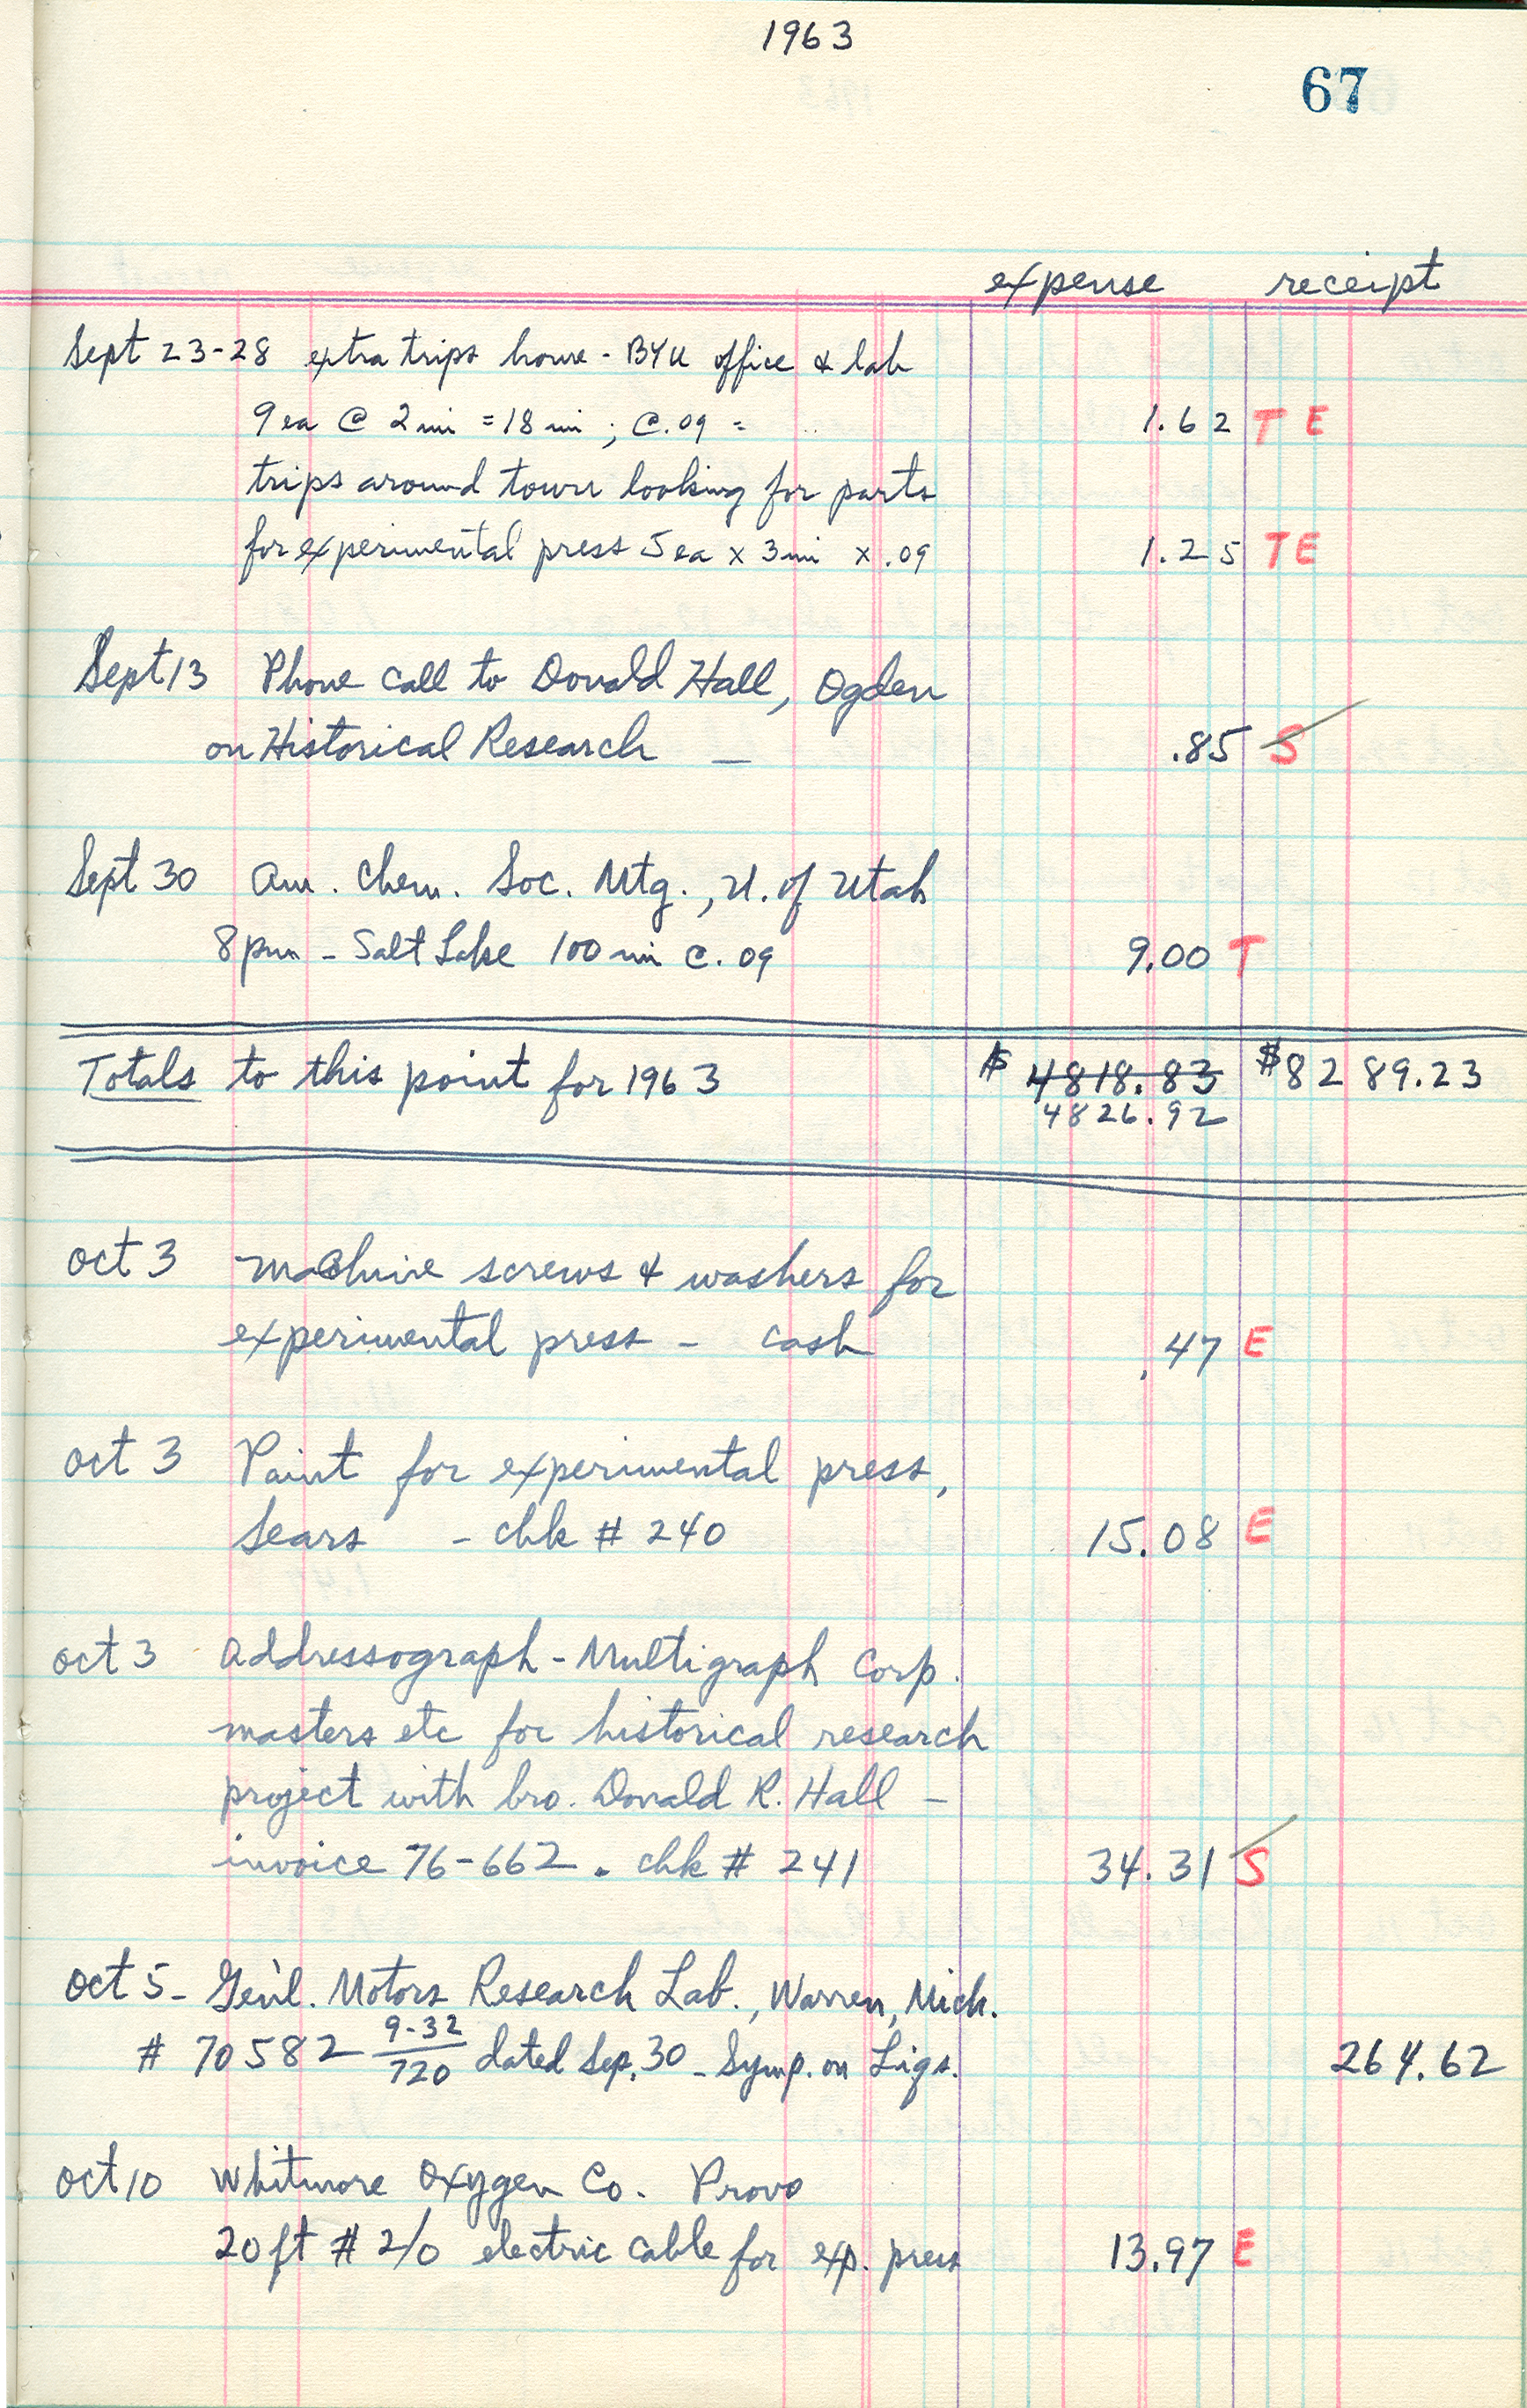 1963
67
expense receipt
Sept 23-28 extra trips home - BYU office & lab
9 ea @ 2 mi = 18 mi ; @ .09 = 1.62 T E
trips around town looking for parts
for experimental press 5 ea x 3 mi x .09 1.25 T E
Sept 13 Phone call to Donald Hall, Ogden
on Historical Research — .85 S
Sept 30 Am. Chem. Soc. Mtg., U. of Utah
8 pm - Salt Lake 100 mi @ .09 9.00 T
Totals to this point for 1963 $ 4818.83 $8289.23
4826.92
Oct 3 Machine screws & washers for
experimental press - cash .47 E
Oct 3 Paint for experimental press,
Sears - chk # 240 15.08 E
Oct 3 Addressograph - Multigraph Corp.
masters etc for historical research
project with bro. Donald R. Hall -
invoice 76-662. chk # 241 34.31 S
Oct 5 - Gen'l. Motors Research Lab., Warren, Mich.
# 70582 9-32/720 dated Sep. 30 - Symp. on Liqs. 264.62
Oct 10 Whitmore Oxygen Co. Provo
20 ft # 2/0 electric cable for exp. press 13.97 E